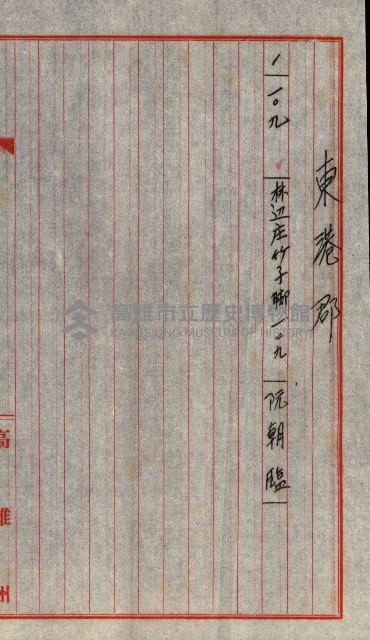 東港郡
一 一〇九 林辺庄竹子脚一〇九 阮朝臨
高雄州
高雄市立歷史博物館
KAOHSIUNG MUSEUM OF HISTORY